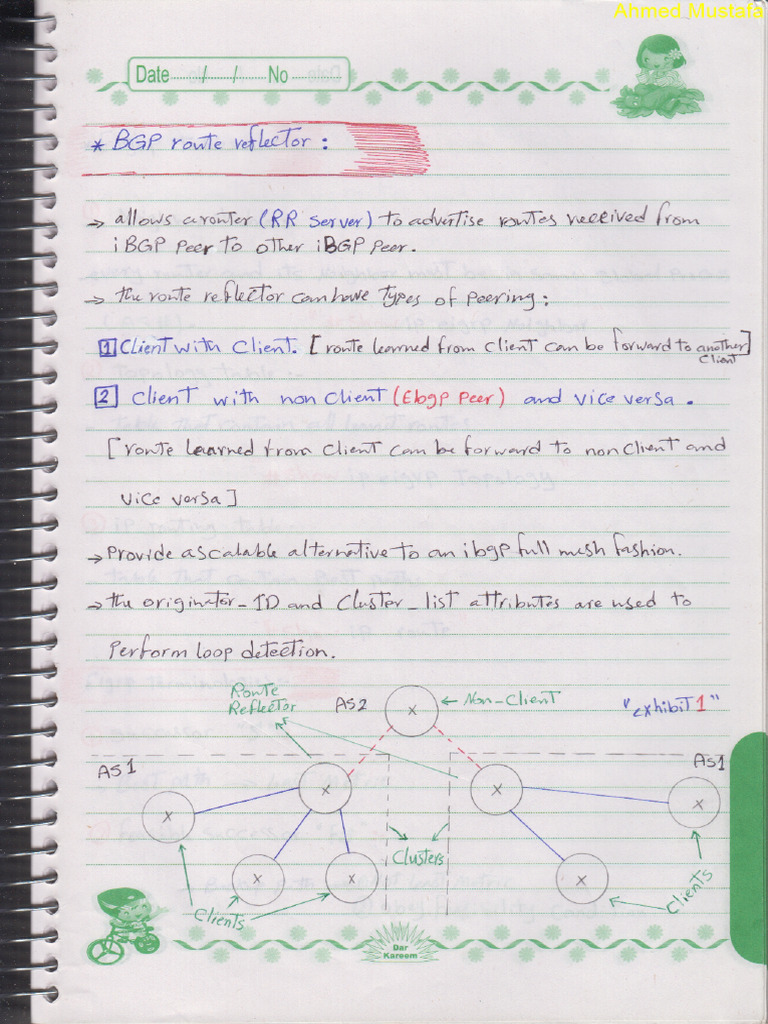 Ahmed Mustafa
Date ....../....../...... No ......
* BGP route reflector :
→ allows a router (RR Server) to advertise routes received from
iBGP Peer to other iBGP Peer.
→ the route reflector can have types of peering :
1 Client with Client. [route learned from client can be forward to another
Client]
2 Client with non client (Ebgp Peer) and vice versa .
[route learned from client can be forward to non client and
vice versa]
→ Provide a scalable alternative to an ibgp full mesh fashion.
→ the originator_ID and Cluster_list attributes are used to
Perform loop detection.
Route
Reflector
AS2
X
← Non-Client
"exhibit 1"
AS1
AS1
X
X
X
X
Clusters
X
X
X
Clients
Clients
Dar
Kareem